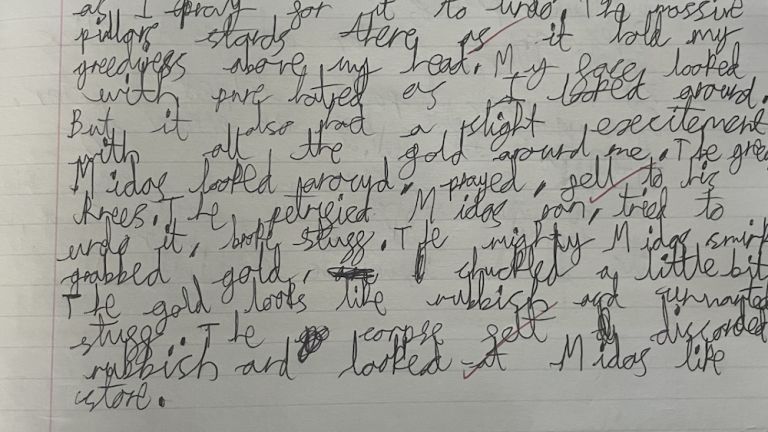 as I pray for it to undo. The possive
pillars stands there as it told my
greedyness above my head. My face looked
with pure hatred as I looked around.
But it also had a slight execitement
with all the gold around me. The grea
Midas looked around, prayed, fell to his
knees. The petrified Midas ran, tried to
undo it, broke stuff. The mighty Midas smirk
grabbed gold, chuckled a little bit
The gold looks like rubbish and unwanted
stuff. The corpse fell discorded
rubbish and looked at Midas like
store.